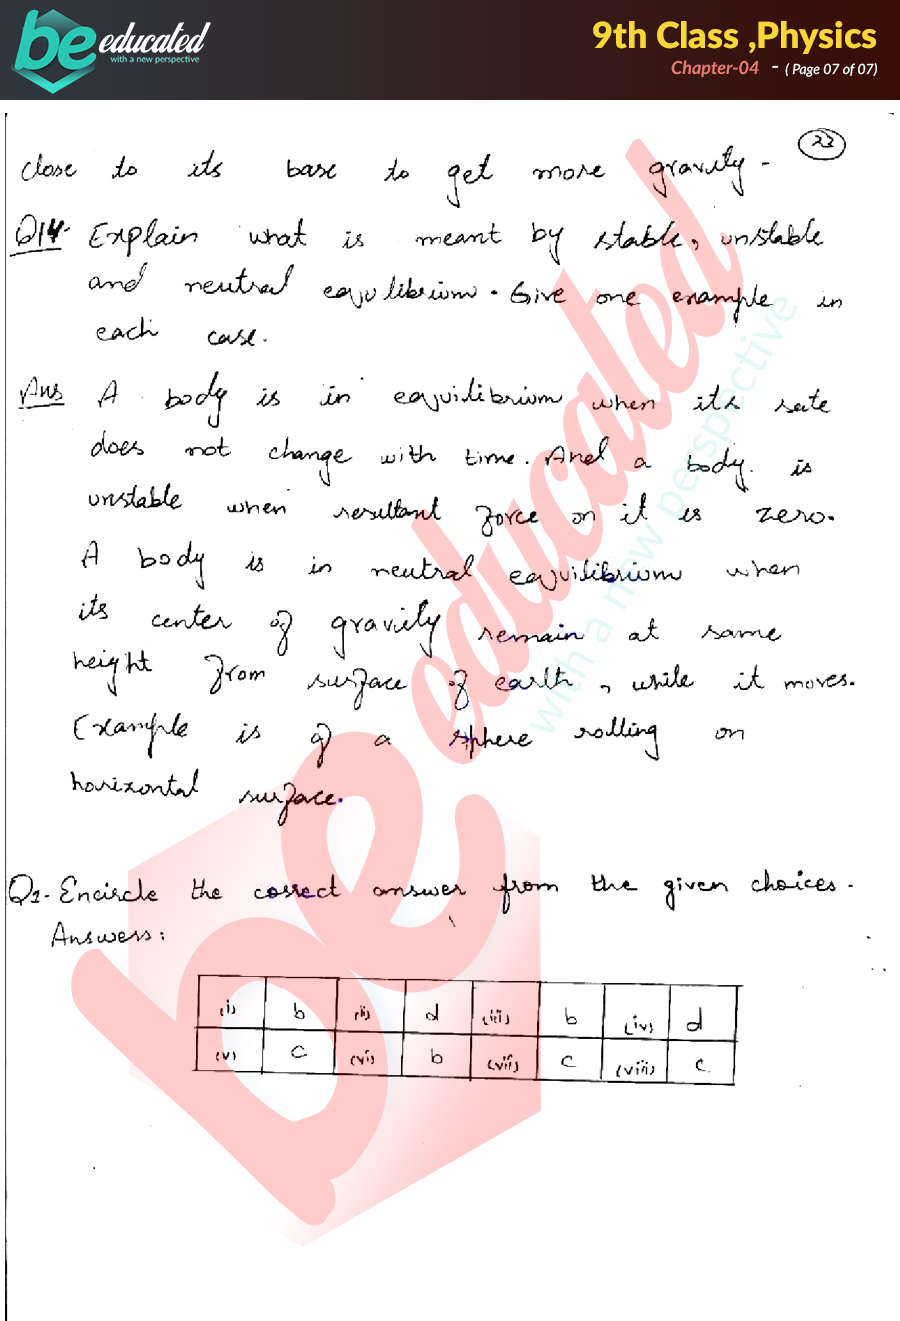 be educated
with a new perspective
9th Class ,Physics
Chapter-04 - ( Page 07 of 07)
23
close to its base to get more gravity -
Q14. Explain what is meant by stable, unstable
and neutral equilibrium. Give one example in
each case.
Ans A body is in equilibrium when its sate
does not change with time. And a body is
unstable when resultant force on it is zero.
A body is in neutral equilibrium when
its center of gravity remain at same
height from surface of earth, while it moves.
Example is of a sphere rolling on
horizontal surface.
Q1- Encircle the correct answer from the given choices.
Answers:
(i) b (ii) d (iii) b (iv) d
(v) c (vi) b (vii) c (viii) c
be educated
with a new perspective